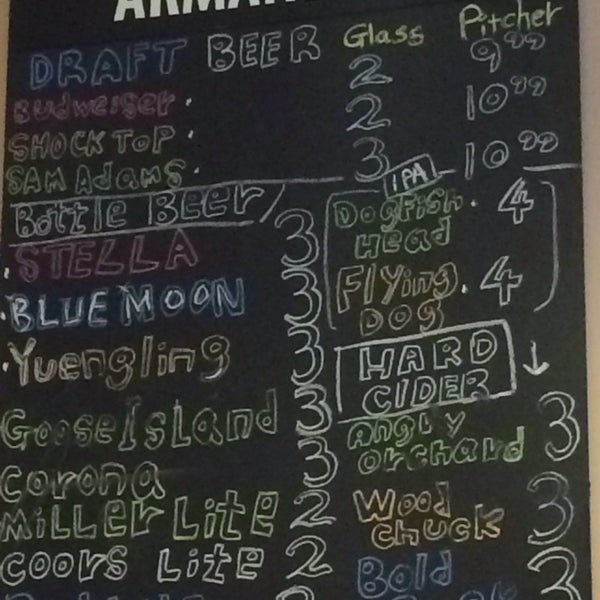 DRAFT BEER Glass Pitcher
Budweiser 2 9.99
SHOCK TOP 2 10.99
SAM Adams 3 10.99
Bottle Beer
STELLA 3
BLUE MOON 3
Yuengling 3
Goose Island 3
Corona 3
MILLER Lite 2
COORS Lite 2
IPA
Dogfish 4
Head
Flying 4
Dog
HARD
CIDER
Angry
orchard 3
Wood
chuck 3
Bold 3